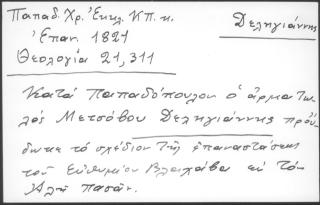 Παπαδ. Χρ. Ἐκκλ. Κ.Π. κ.
Δεληγιάννης
Ἐπαν. 1821
Θεολογία 21, 311
Κατά Παπαδόπουλον ὁ ἁρματω
λός Μετσόβου Δεληγιάννης προὔ
δωκε τό σχέδιον τῆς ἐπαναστάσεως
τοῦ Εὐθυμίου Βλαχάβα εἰς τόν
Ἀλῆ πασᾶν.